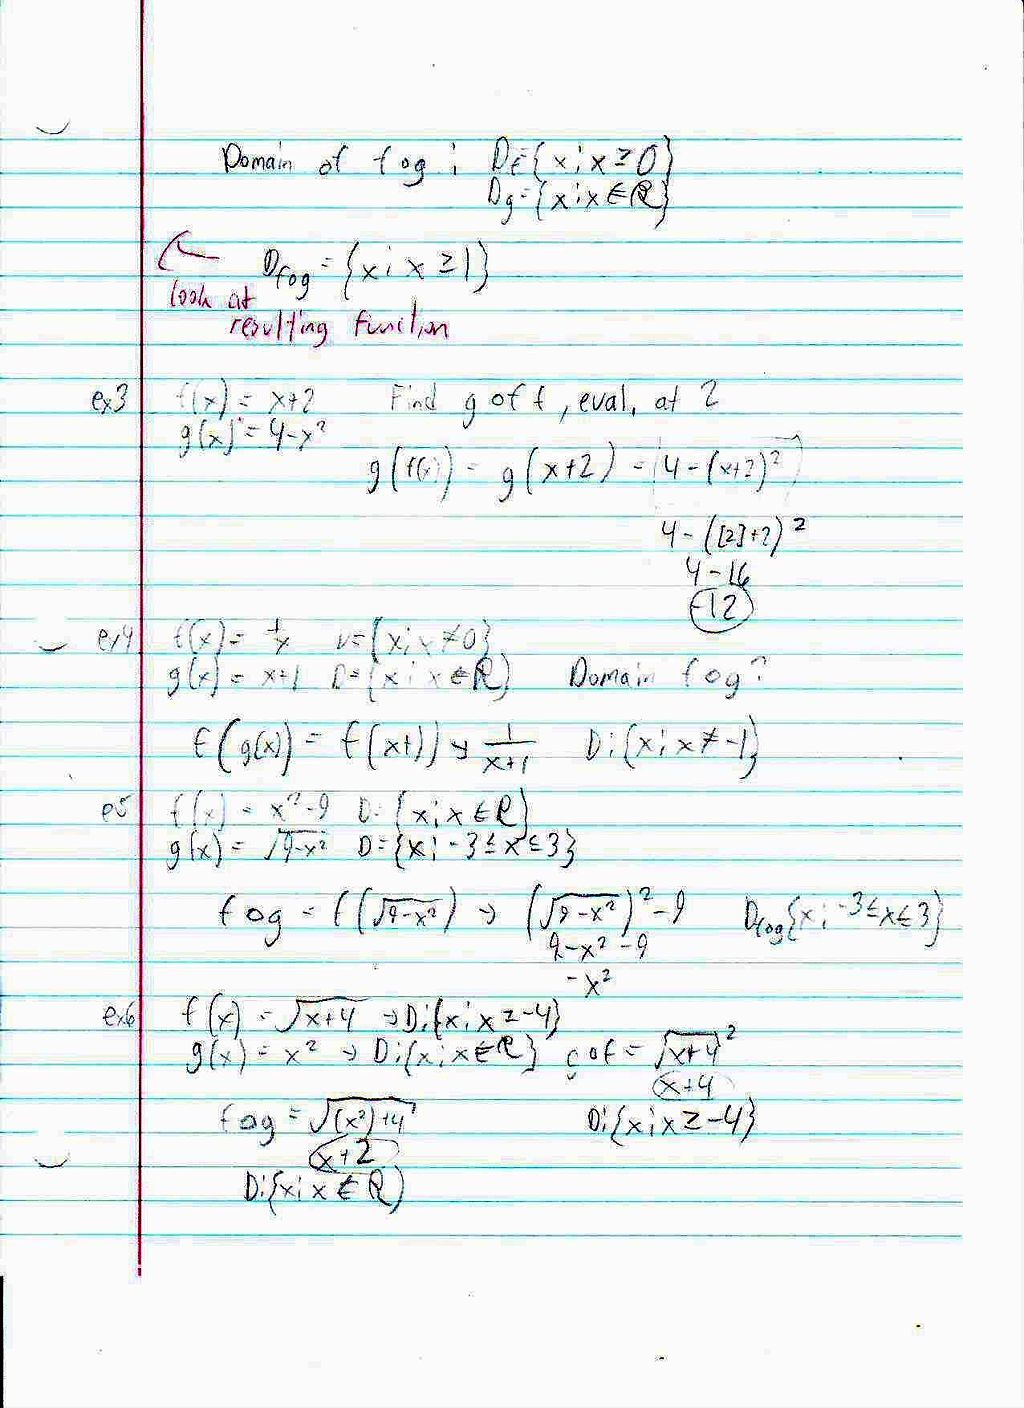 Domain of fog : Df={x; x ≥ 0}
Dg={x; x ∈ ℝ}
Dfog = {x; x ≥ 1}
look at
resulting function
ex3 f(x) = x+2 Find g of f, eval, at 2
g(x) = 4-x²
g(f(x)) = g(x+2) = 4-(x+2)²
4-([2]+2)²
4-16
-12
ex4 f(x) = 1/x D={x; x ≠ 0}
g(x) = x+1 D={x; x ∈ ℝ} Domain fog?
f(g(x)) = f(x+1) → 1/(x+1) D:{x; x ≠ -1}
e5 f(x) = x²-9 D: {x; x ∈ ℝ}
g(x) = √(9-x²) D={x; -3≤x≤3}
fog = f(√(9-x²)) → (√(9-x²))²-9 Dfog{x; -3≤x≤3}
9-x²-9
-x²
ex6 f(x) = √(x+4) → D:{x; x ≥ -4}
g(x) = x² → D:{x; x ∈ ℝ} gof = √(x+4)²
x+4
fog = √((x²)+4) D:{x; x ≥ -4}
x+2
D:{x; x ∈ ℝ}